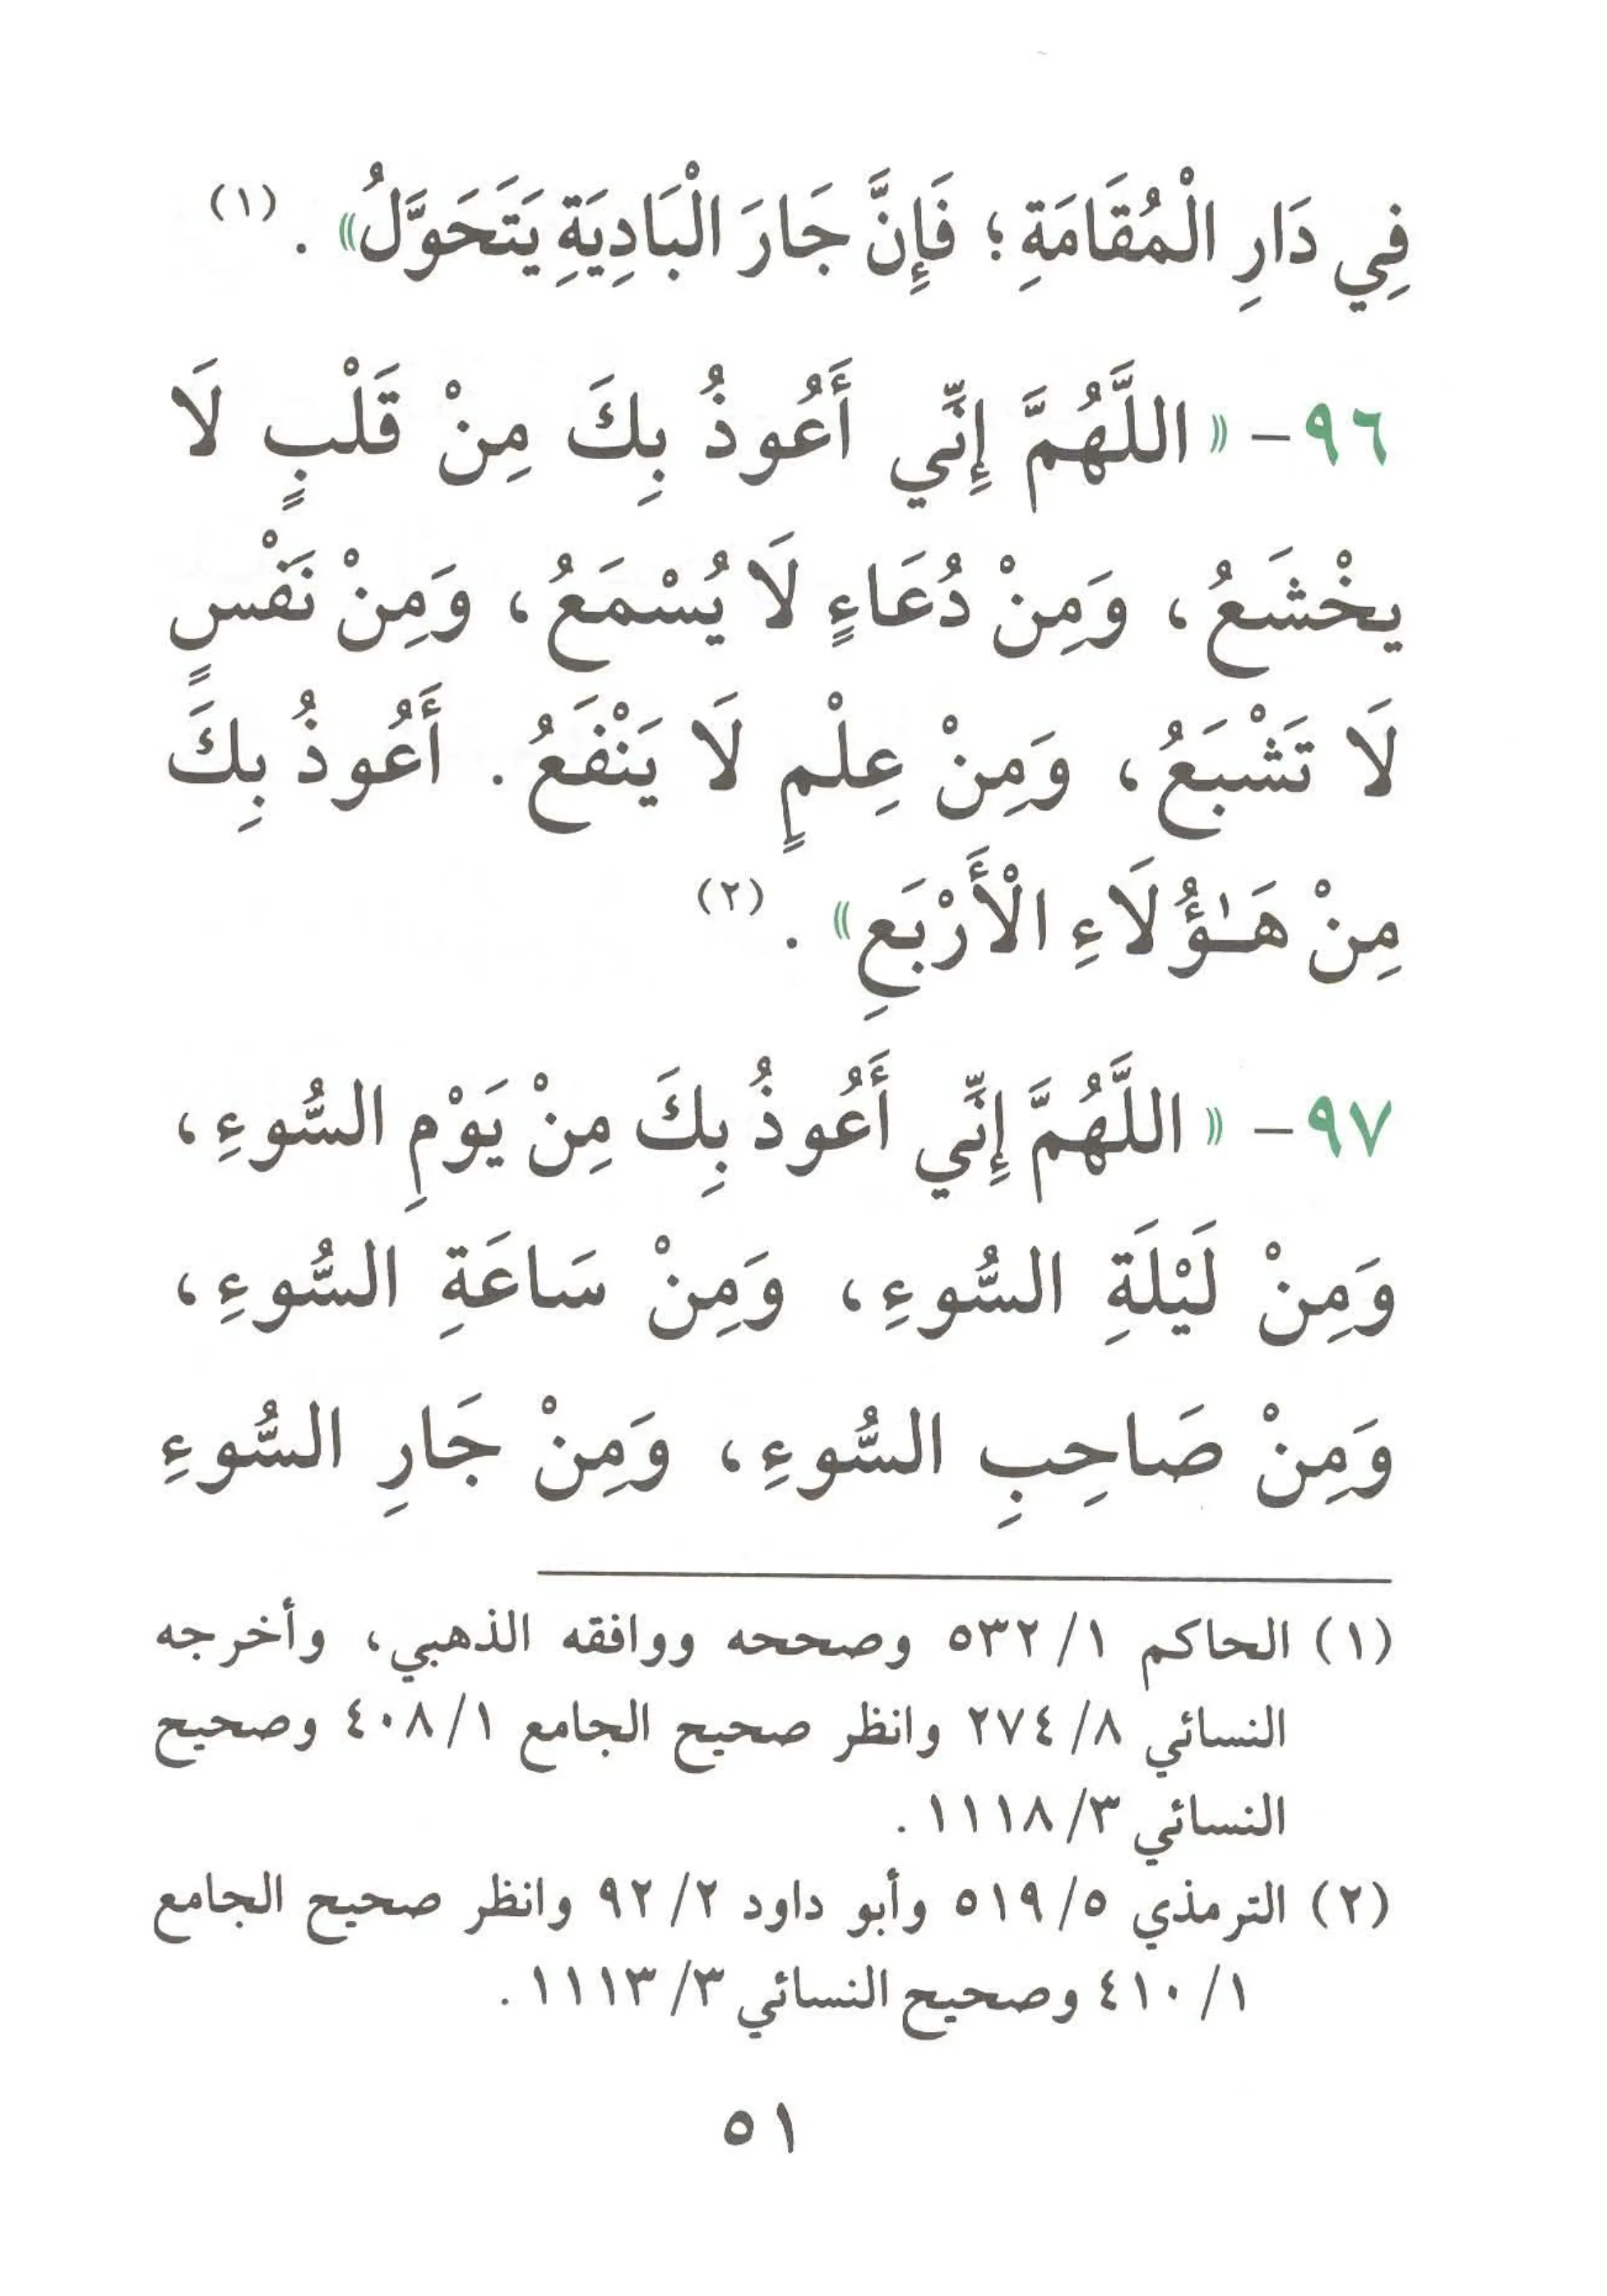 فِي دَارِ الْمُقَامَةِ؛ فَإِنَّ جَارَ الْبَادِيَةِ يَتَحَوَّلُ» . (١)
٩٦- «اللَّهُمَّ إِنِّي أَعُوذُ بِكَ مِنْ قَلْبٍ لَا
يخْشَعُ، وَمِنْ دُعَاءٍ لَا يُسْمَعُ، وَمِنْ نَفْسٍ
لَا تَشْبَعُ، وَمِنْ عِلْمٍ لَا يَنْفَعُ. أَعُوذُ بِكَ
مِنْ هَـٰؤُلَاءِ الْأَرْبَعِ» . (٢)
٩٧- «اللَّهُمَّ إِنِّي أَعُوذُ بِكَ مِنْ يَوْمِ السُّوءِ،
وَمِنْ لَيْلَةِ السُّوءِ، وَمِنْ سَاعَةِ السُّوءِ،
وَمِنْ صَاحِبِ السُّوءِ، وَمِنْ جَارِ السُّوءِ
(١) الحاكم ١/ ٥٣٢ وصححه ووافقه الذهبي، وأخرجه
النسائي ٨/ ٢٧٤ وانظر صحيح الجامع ١/ ٤٠٨ وصحيح
النسائي ٣/ ١١١٨ .
(٢) الترمذي ٥/ ٥١٩ وأبو داود ٢/ ٩٢ وانظر صحيح الجامع
١/ ٤١٠ وصحيح النسائي ٣/ ١١١٣ .
٥١